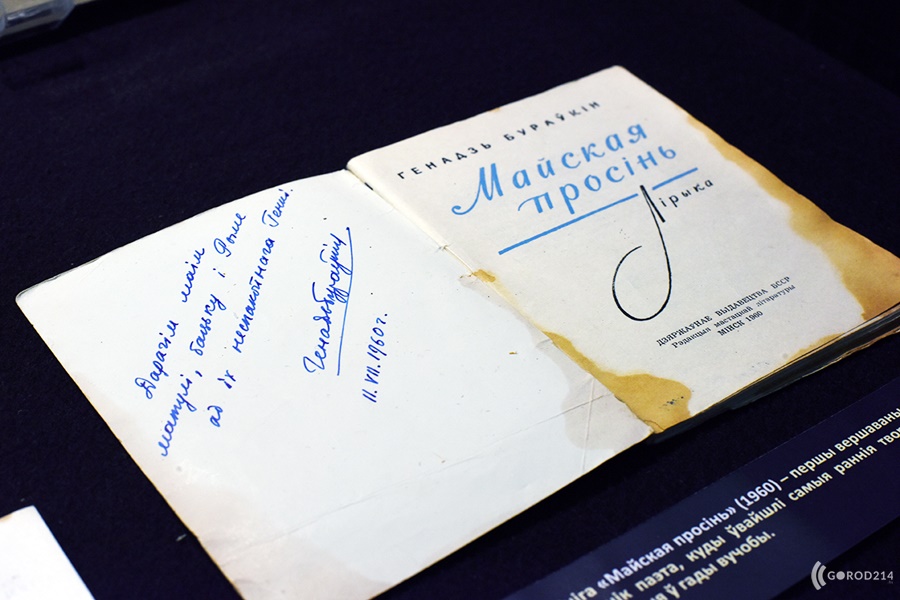 Дарагім маім
матулі, бацьку і Рыме
ад іх неспакойнага Гені.
Генадзь Бураўкін
11.VII.1960 г.
ГЕНАДЗЬ БУРАЎКІН
Майская
просінь
Лірыка
ДЗЯРЖАЎНАЕ ВЫДАВЕЦТВА БССР
Рэдакцыя мастацкай літаратуры
МІНСК 1960
«Майская просінь» (1960) – першы вершаваны
паэта, куды ўвайшлі самыя раннія
ў гады вучобы.
GOROD214